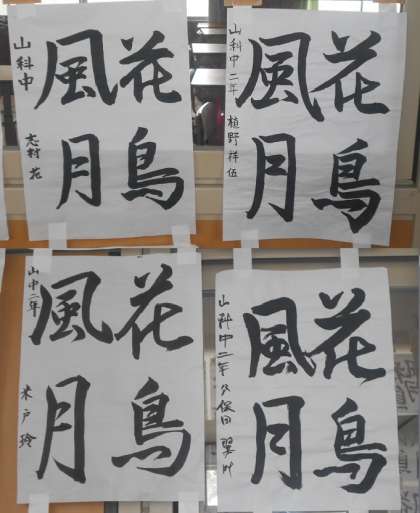 花鳥
風月
山科中
志村 花
花鳥
風月
山科中二年 植野祥伍
花鳥
風月
山中二年
木戸 玲
花鳥
風月
山科中二年 久保田